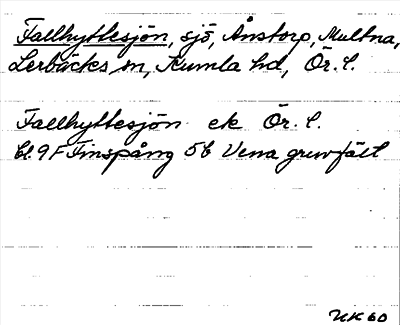 Fallhyttesjön, sjö, Ånstorp, Multna,
Lerbäcks sn, Kumla hd, Ör. l.
Fallhyttesjön ek Ör. l.
bl. 9 F Finspång 5b Vena gruvfält